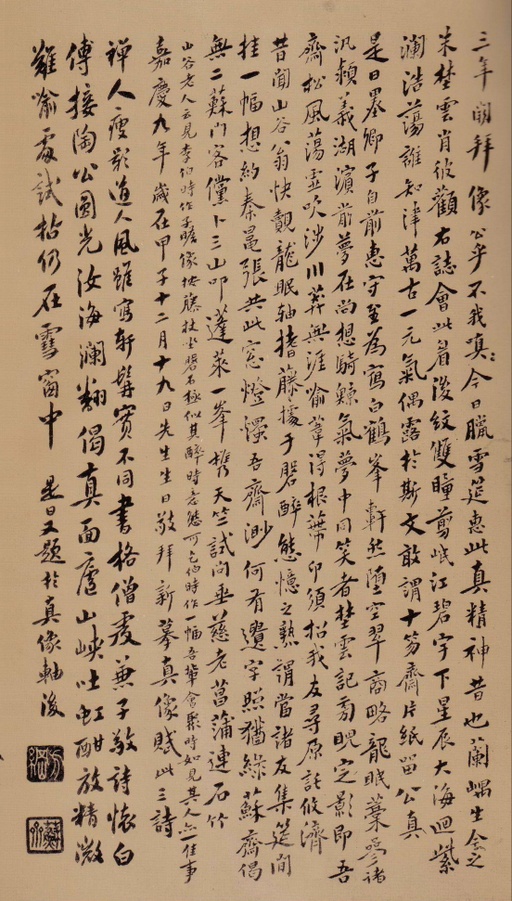 三年開拜像公乎不我嗔今日臘雪筵惠此真精神昔也蘭嵎生金之
朱埜雲肖彼觀右誌會此眉後紋雙瞳剪岷江碧宇下星辰大海迴紫
瀾浩蕩誰知津萬古一元氣偶露於斯文敢謂十笏齋片紙留公真
是日墨卿子自前惠守至為寫白鶴峯軒然墮空翠商略龍眠藁
汎潁義湖濱前夢在尚想騎鯨氣夢中同笑者埜雲記勇睨定影即吾
齋松風蕩雲吹涉川葬無涯喻葦得根葉印須招我友尋原託攸濟
昔聞山谷翁快覿龍眠軸搘藤據于磐醉態憶之熟謂當諸友集筵間
挂一幅想約秦晁張共此窓燈讀吾齋渺何有邊字照猶綠蘇齋偈
無二蘇門客儻卜三山叩蓬萊一峯攜天竺試問垂慈老菖蒲連石竹
山谷老人云見李伯時作子瞻像按藤杖坐磐石極似其醉時意態可乞伯時作一幅吾輩會聚時如見其人亦一佳事
嘉慶九年歲在甲子十二月十九日先生生日敬拜新摹真像賦此三詩
禪人瘦影道人風雖寫軒髯實不同書格僧虔兼子敬詩懷白
傅接陶公圓光汝海瀾翻偈真面廬山峽吐虹酣放精微
難喻處試拈仍在雪窗中 是日又題於真像軸後